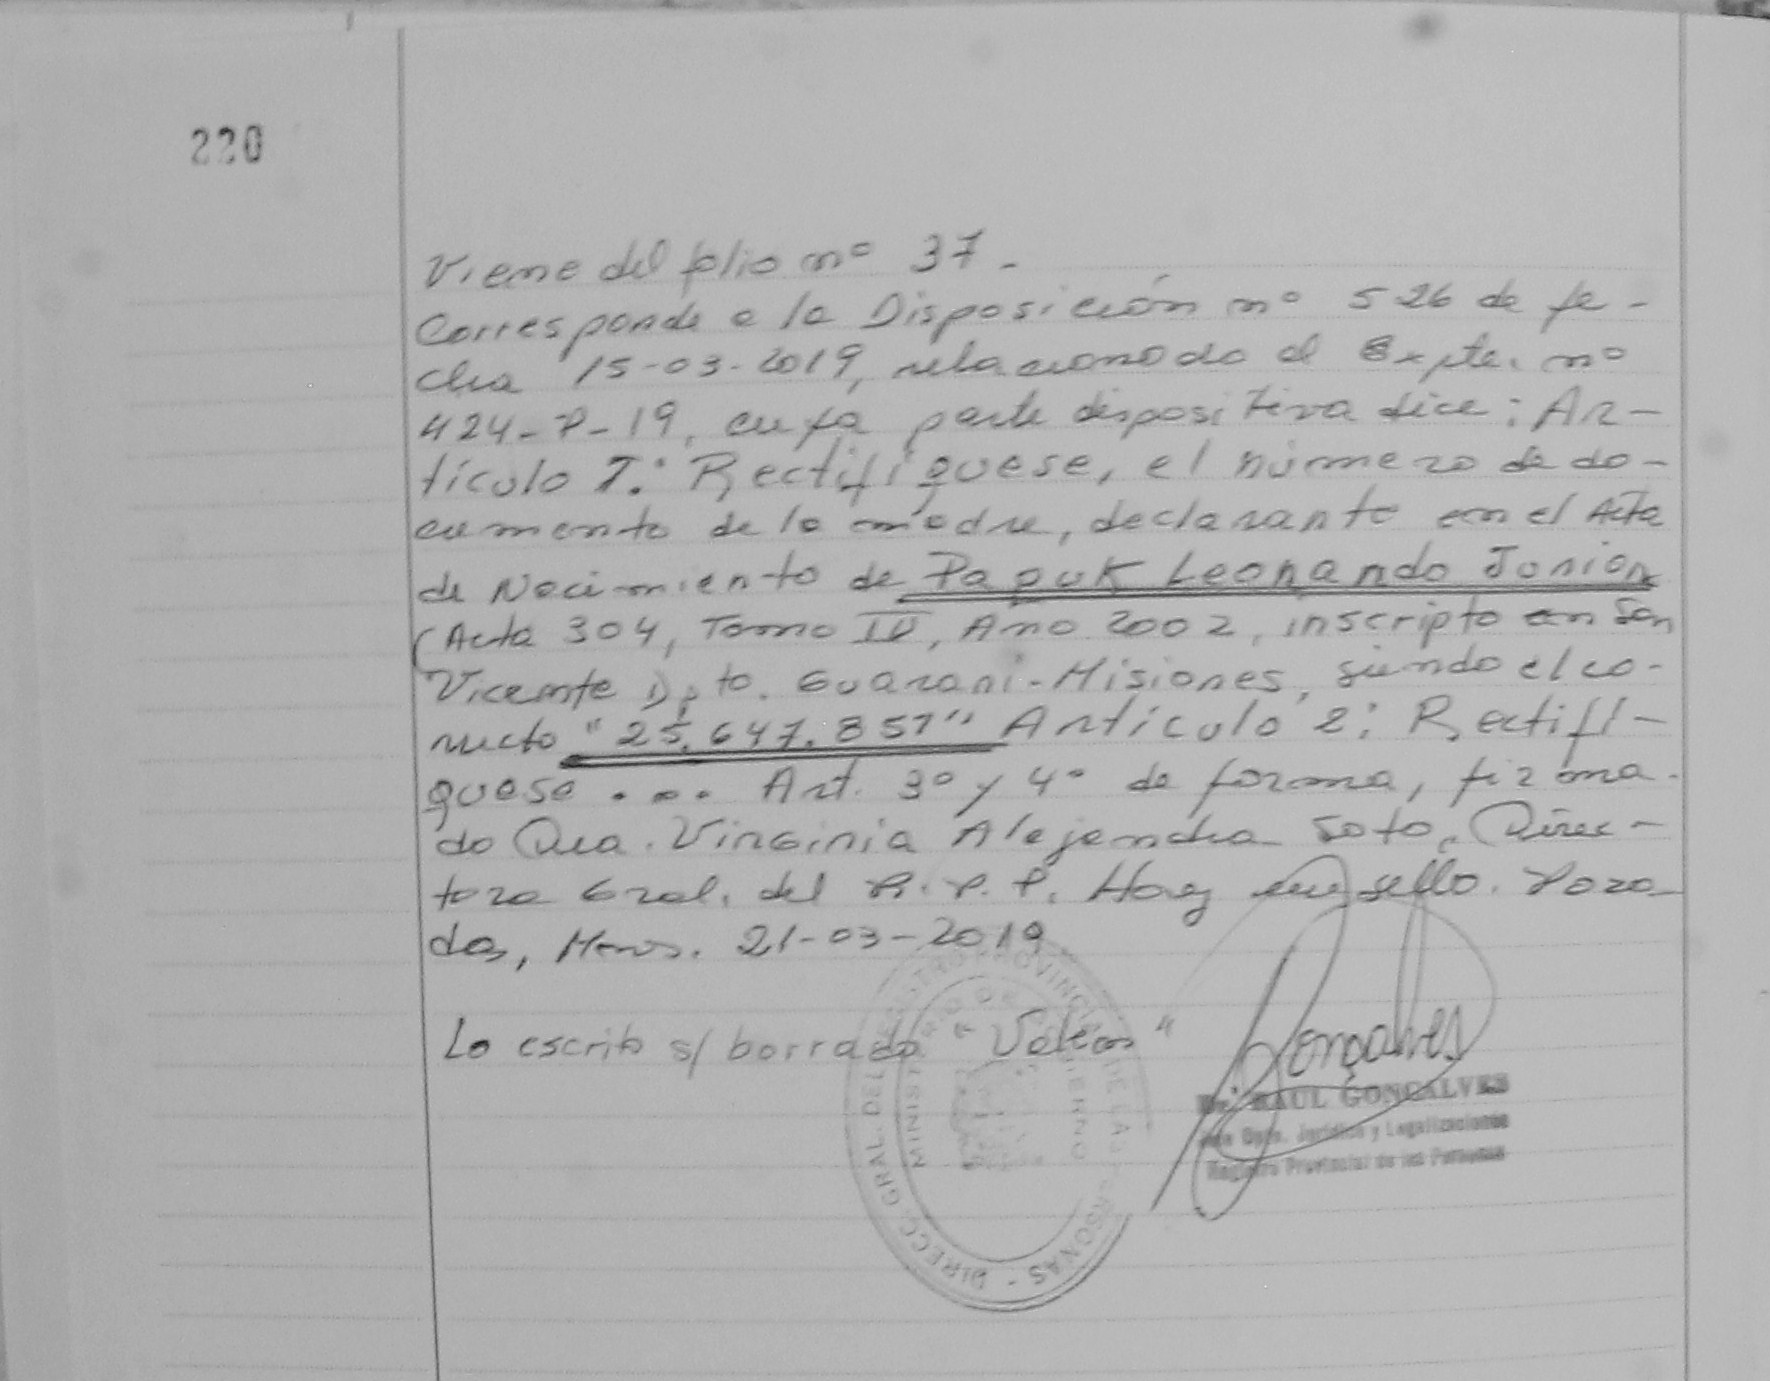 220
Viene del folio nº 37.-
Corresponde a la Disposición nº 526 de fe-
cha 15-03-2019, relacionado al Expte. nº
424-P-19, cuya parte dispositiva dice: Ar-
tículo 1.º Rectifíquese, el número de do-
cumento de la madre, declarante en el Acta
de Nacimiento de Paquk Leonardo Junior
(Acta 304, Tomo IV, Año 2002, inscripto en San
Vicente Dpto. Guaraní-Misiones, siendo el co-
rrecto "25.647.851" Artículo 2: Rectifí-
quese ... Art. 3º y 4º de forma, firma-
do Dra. Virginia Alejandra Soto. Direc-
tora Gral. del R.P.P. Hay un sello. Posa-
das, Mnes. 21-03-2019
Lo escrito s/ borrado "Valen"
Gonçalves
Dr. RAUL GONCALVES
Dpto. Jurídico y Legalizaciones
Registro Provincial de las Personas
DIRECC. GRAL. DEL REGISTRO PROVINCIAL DE LAS PERSONAS
MINISTERIO DE GOBIERNO